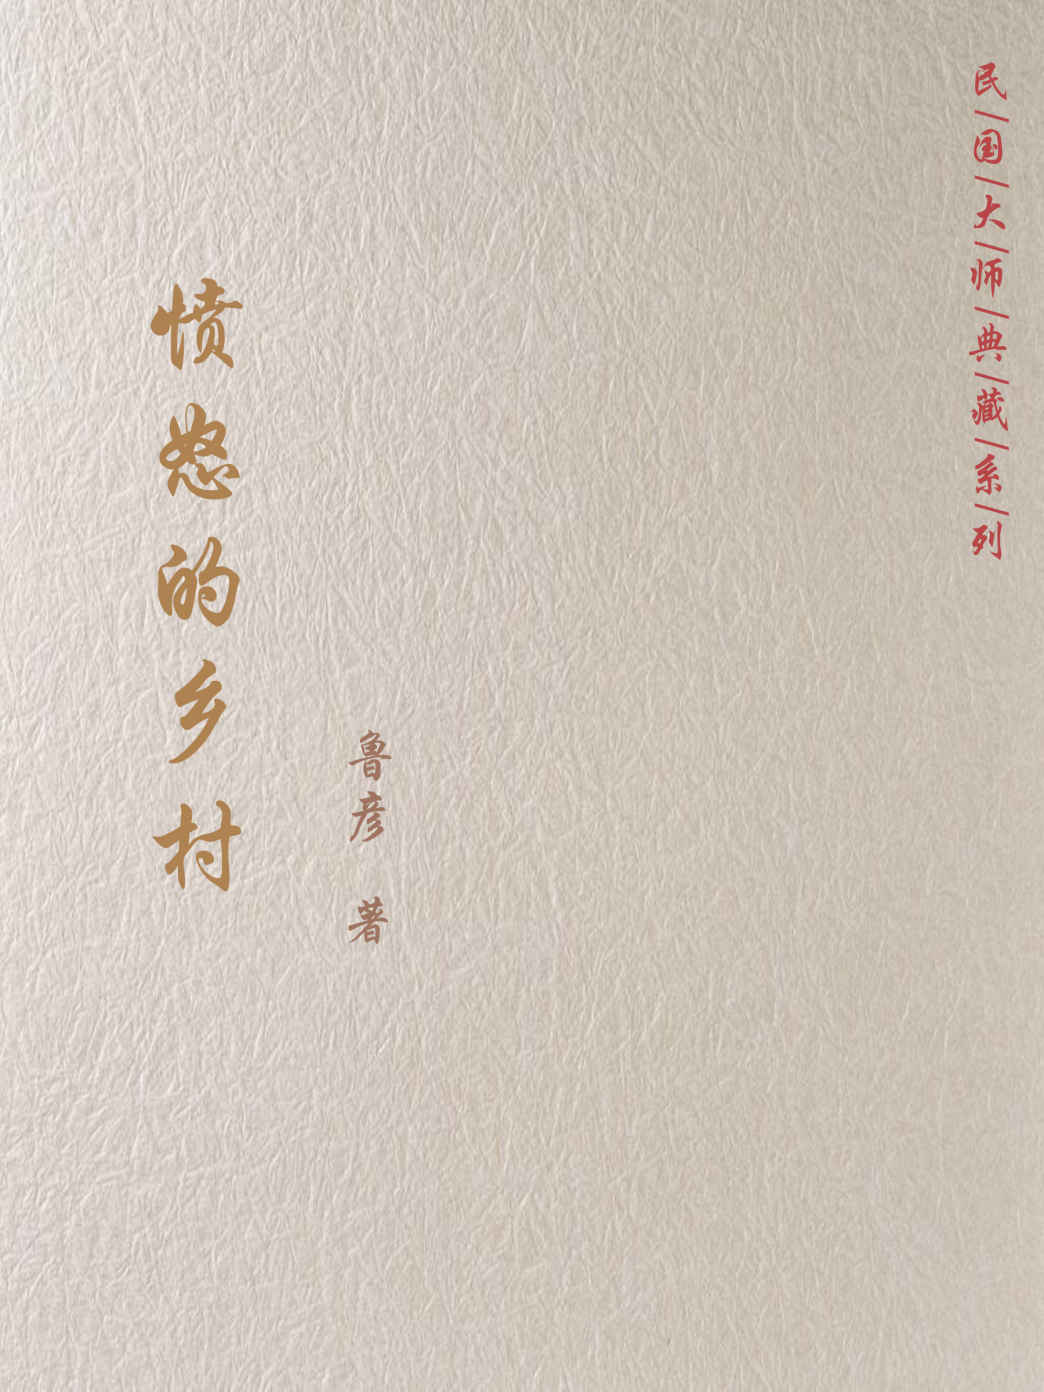 民/国/大/师/典/藏/系/列
愤怒的乡村
鲁彦 著